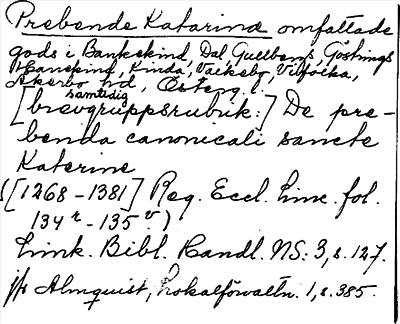 Prebende Katarina omfattade
gods i Bankekind, Dal, Gullbergs, Göstrings
Hanekind, Kinda, Valkebo, Vifolka,
Åkerbo hd, Österg.
[samtidig brevgruppsrubrik:] De pre-
benda canonicali sancte
Katerine
([1268-1381] Reg. Eccl. Linc. fol.
134 r - 135 v)
Link. Bibl. Handl. NS: 3, s. 127.
jfr Almquist, Lokalförvaltn. 1, s. 385.